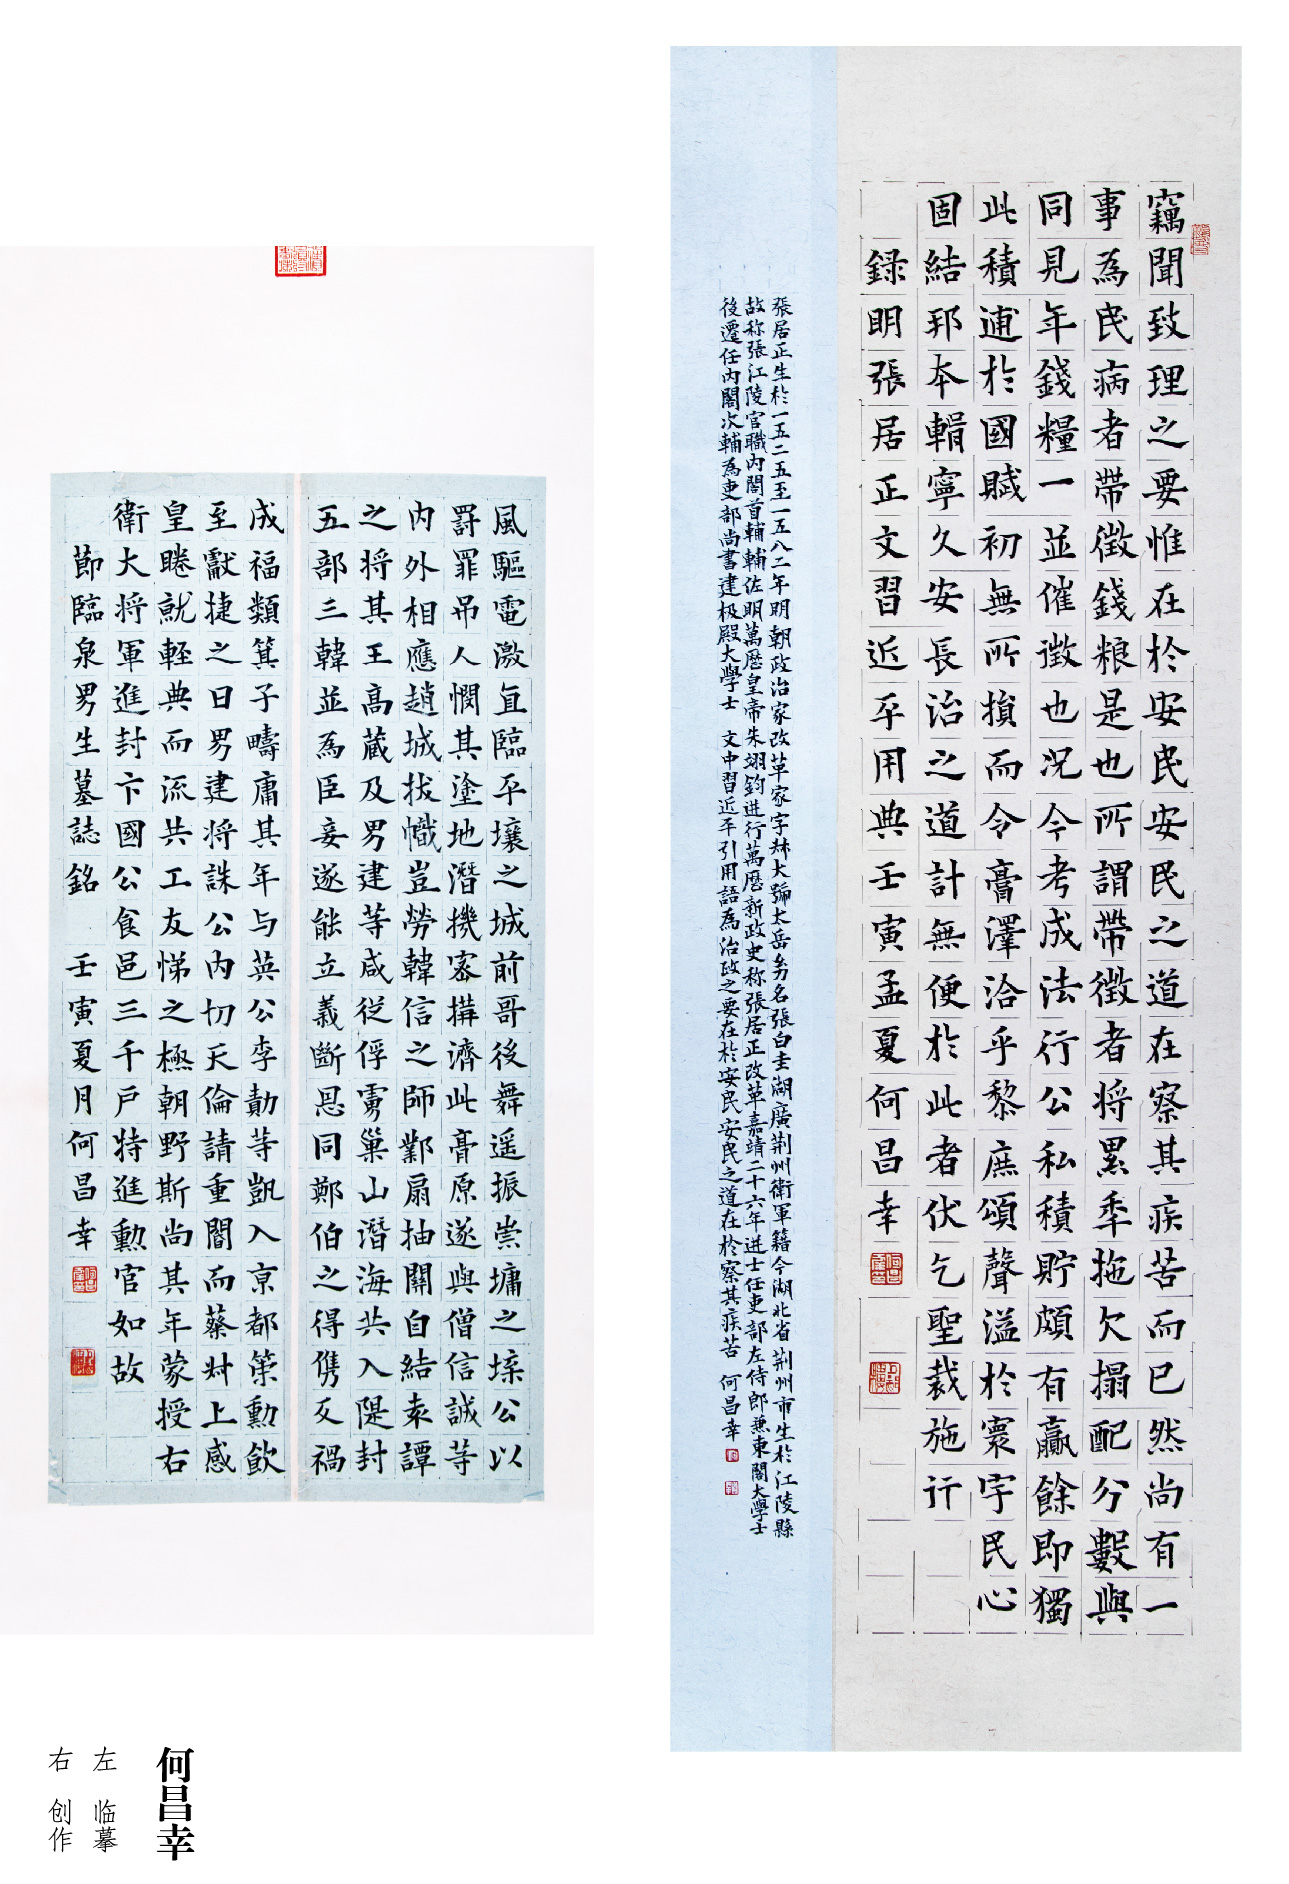 竊聞致理之要惟在於安民安民之道在察其疾苦而已然尚有一
事為民病者帶徵錢粮是也所謂帶徵者将累年拖欠搨配分數與
同見年錢糧一並催徵也况今考成法行公私積貯頗有贏餘即獨
此積逋於國賦初無所損而令膏澤洽乎黎庶頌聲溢於寰宇民心
固結邦本輯寧久安長治之道計無便於此者伏乞聖裁施行
録明張居正文習近平用典壬寅孟夏何昌幸
張居正生於一五二五至一五八二年明朝政治家改革家字叔大號太岳幼名張白圭湖廣荆州衛軍籍今湖北省荆州市生於江陵縣
故称張江陵官職内閣首輔輔佐明萬歷皇帝朱翊鈞进行萬歷新政史称張居正改革嘉靖二十六年进士任吏部左侍郎兼東閣大學士
後遷任内閣次輔為吏部尚書建极殿大學士 文中習近平引用語為治政之要在於安民安民之道在於察其疾苦 何昌幸
風驅電激直臨平壤之城前哥後舞遥振崇墉之堞公以
罸罪吊人憫其塗地潛機密搆濟此膏原遂與僧信誠等
内外相應趙城拔幟豈勞韓信之師鄴扇抽關自結袁譚
之将其王高蔵及男建等咸从俘虜巢山潛海共入隄封
五部三韓並為臣妾遂能立義斷恩同鄭伯之得儁反禍
成福類箕子疇庸其年与英公李勣等凱入京都策勳飲
至獻捷之日男建将誅公内切天倫請重閽而蔡叔上感
皇睠就輕典而流共工友悌之極朝野斯尚其年蒙授右
衛大将軍進封卞國公食邑三千户特進勳官如故
節臨泉男生墓誌銘 壬寅夏月何昌幸
何昌幸
左 临摹
右 创作